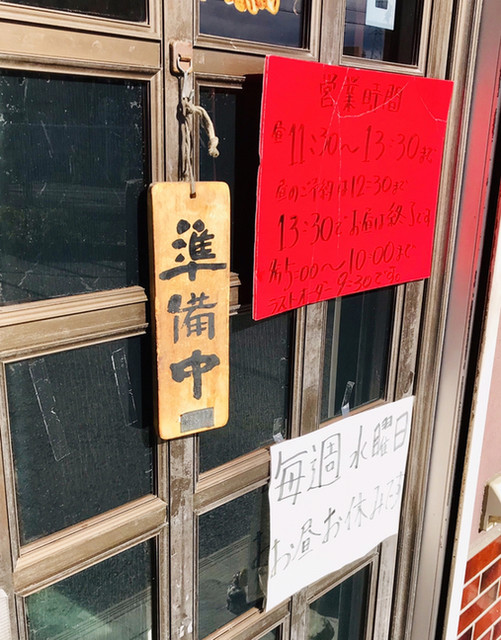 準備中
営業時間
昼11:30～13:30まで
昼のご予約は12:30まで
13:30でお昼は終了です
5:00～10:00まで
ラストオーダー9:30です。
毎週水曜日
お昼お休みです